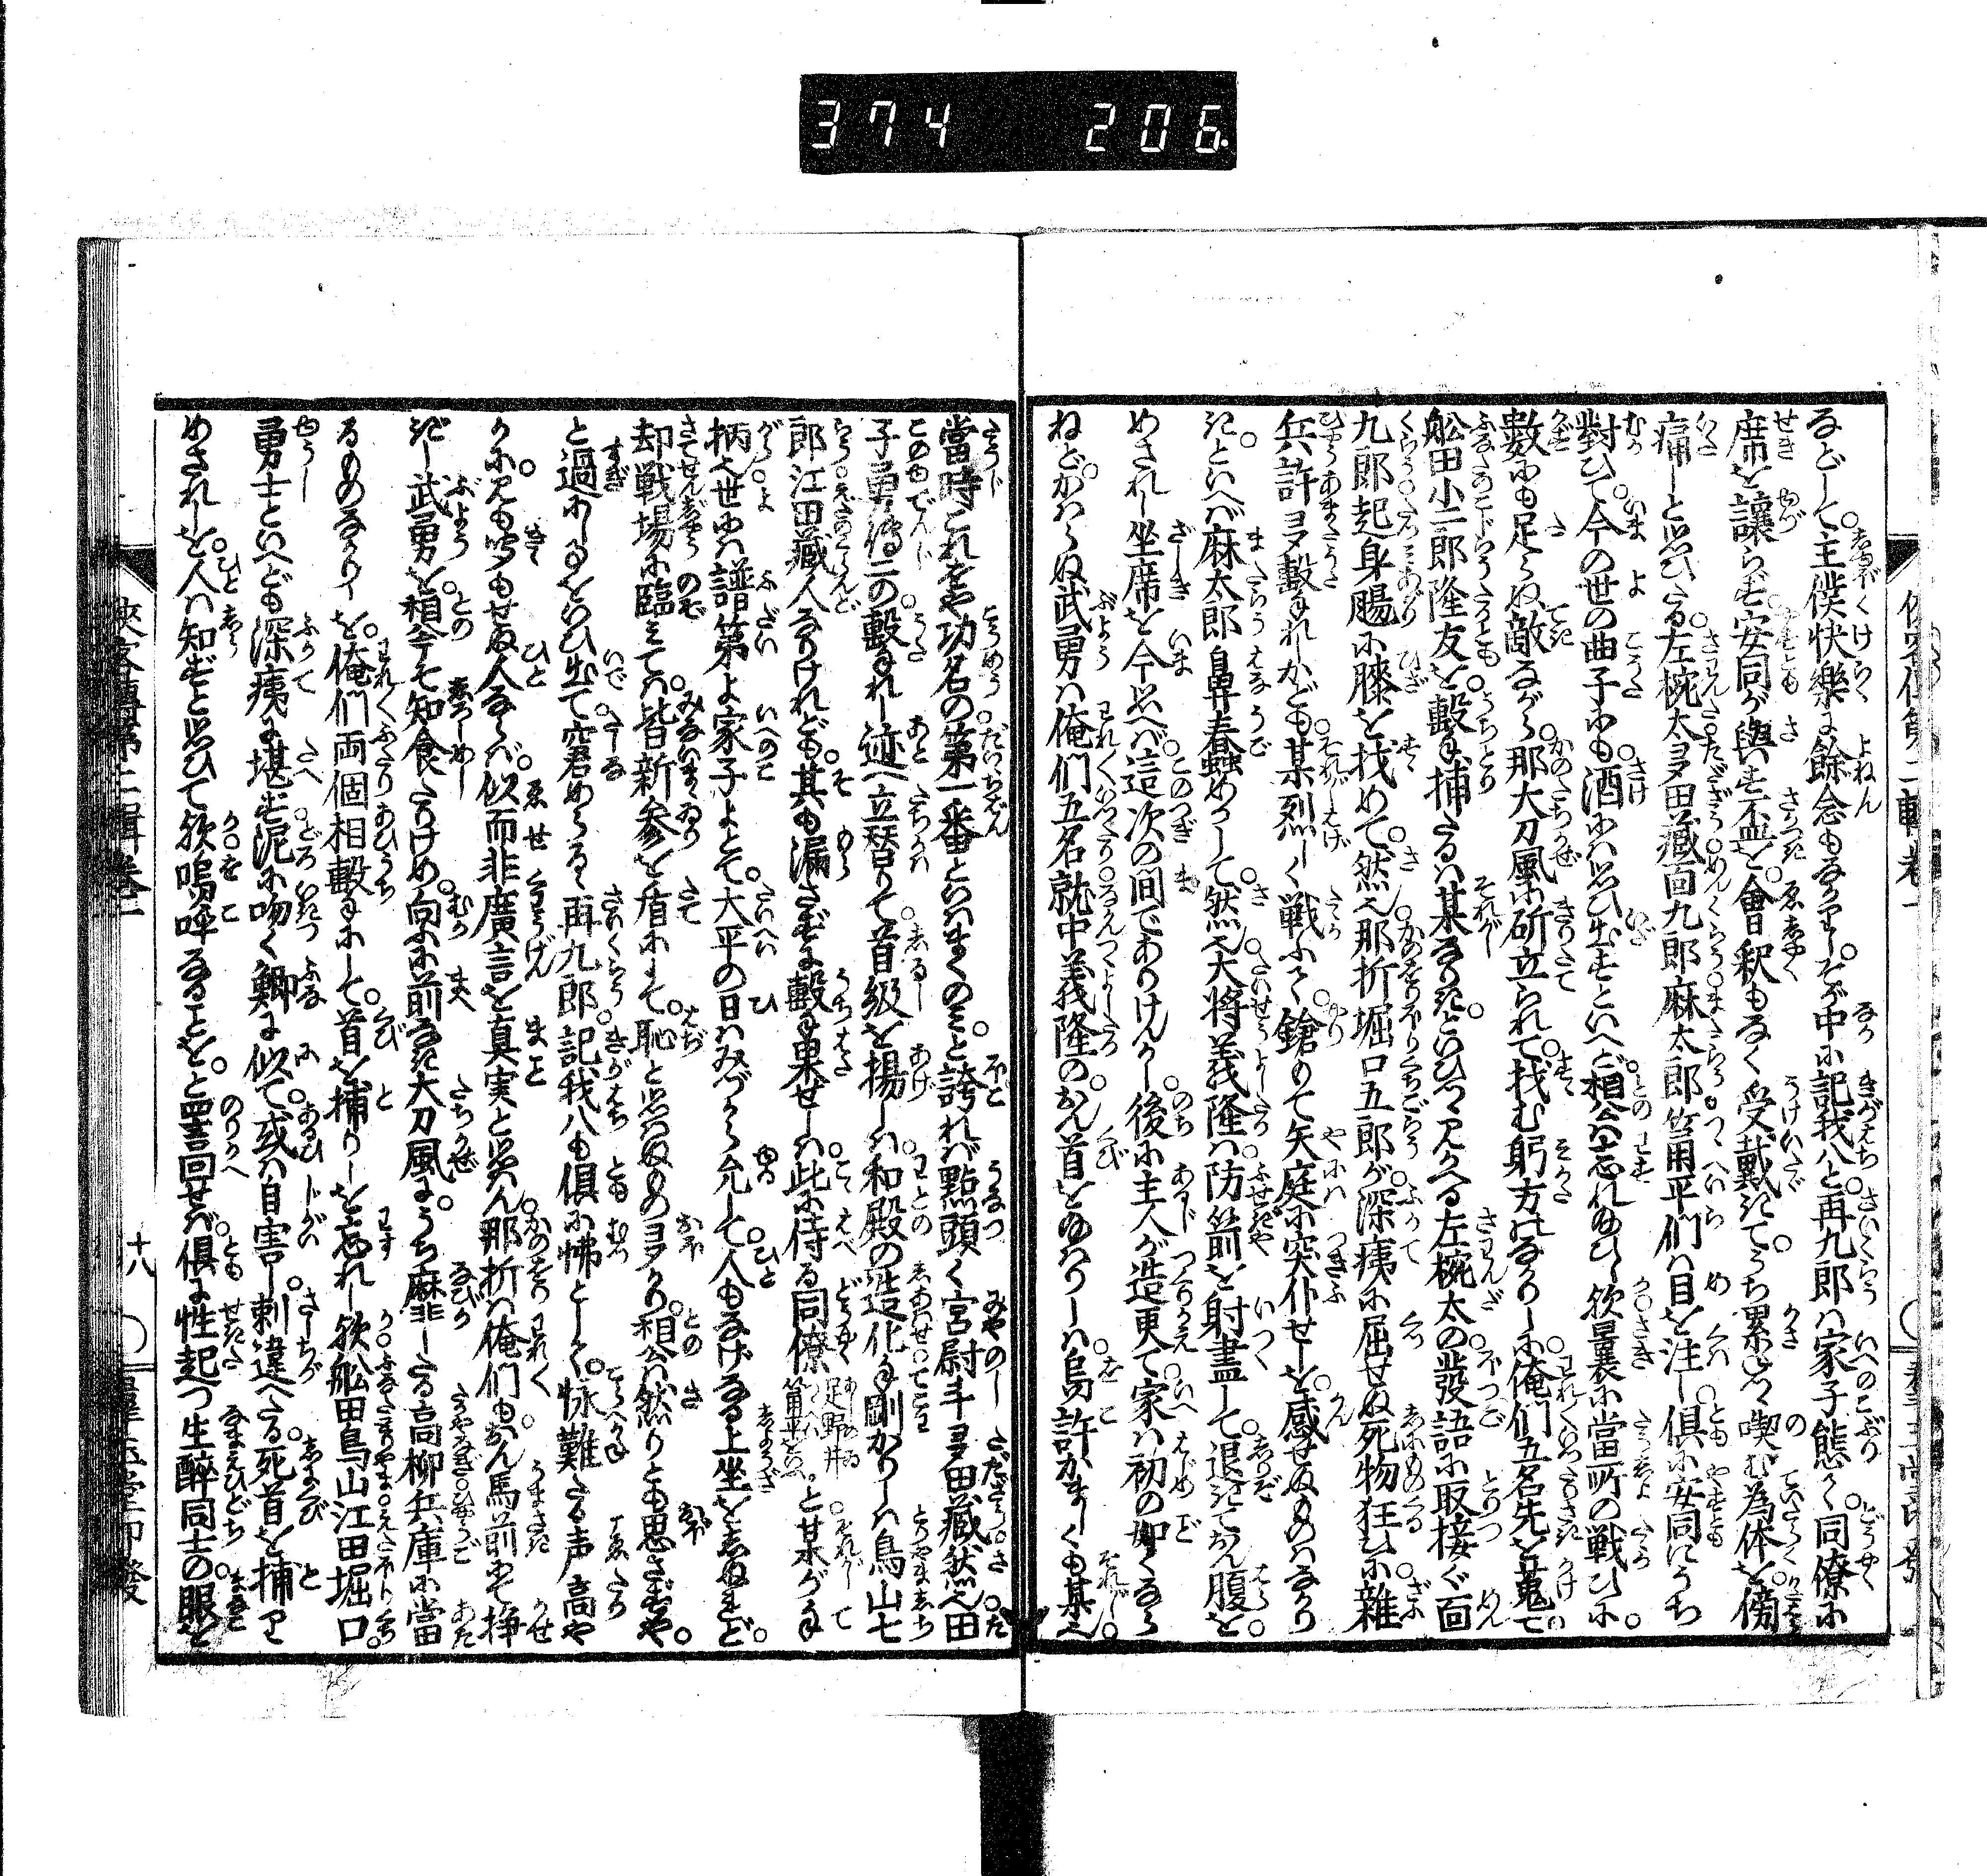 374 206
などして。主僕快樂に餘念もなかりき。そが中に記我八と。再九郎ハ家子態く。同僚に
席を讓らず。安同が與す盃を。會釈もなく受戴きて。うち累つゝ喫む為体を。傍
痛しと思ひたる。左椀太。多田藏。面九郎。麻太郎。筩平們ハ目を注し。倶に安同にうち
對ひて。今の世の曲子にも。酒にハ思ひ出すといへど。相公ハ忘れ給ひし歟。曩に當所の戦ひに。
數にも足らぬ敵ながら。那大刀風に斫立られて。找む躬方はなかりしに。俺們五名先を蒐て。
舩田小二郎隆友を。擊捕たるハ某なりきといひつゝ見かへる左椀太の。發語に取接ぐ面
九郎起身膓に膝を找めて。然ン那折堀口五郎が。深痍に屈せぬ死物狂ひに。雜
兵許多擊れしかども。某烈しく戦ふて。鎗もて矢庭に突仆せしを。感せぬものハなかり
きといへバ麻太郎鼻春蠢めかして。然ン大将義隆ハ防箭を射盡して。退きておん腹を。
めされし坐席を今思へバ。這次の間でありけんかし。後に主人が造更て。家ハ初の如くなら
ねど。かハらぬ武勇ハ俺們五名。就中義隆の。おん首を給ハりしハ。烏許がましくも某ン。
當時これをや功名の。第一番といはまくのミと誇れバ點頭く宮尉手多田藏。然ン田
子勇傳二の擊れし迹へ立替りて。首級を揚しハ和殿の造化。手剛かりしハ鳥山七
郎江田藏人なりけれども。其も漏さずに擊果せしハ。此に侍る同僚足野井筩平をいふ。と某がて
柄ン。世にハ譜第よ家子よとて。大平の日ハみづから允して。人もなげなる上坐をしぬれど。
却戦場に臨ミてハ。皆新参を盾にして。恥と思はぬもの多かり。相公ハ然りとも思さずや。
と過にしことをいひ出て。窘めらるゝ再九郎。記我八も倶に怫として。怺難たる声高や
かに。見も聞もせぬ人ならバ。似而非廣言を真実と思はん。那折ハ俺們も。おん馬前にて挣
ぎし武勇を。相公そ知食たりけめ。向に前なき大刀風に。うち靡したる高柳兵庫に當
るものなかりしを。俺們両個相擊にして。首を捕りしを忘れし歟。舩田鳥山江田堀口。
勇士といへども深痍に堪ず。泥に吻く鮒に似て。或ハ自害し。刺違へたる。死首を捕りて
めされしを。人ハ知ずと思ひて歟。嗚呼なることをと罵囘せバ。倶に性起つ生醉同士の。眼を
十八